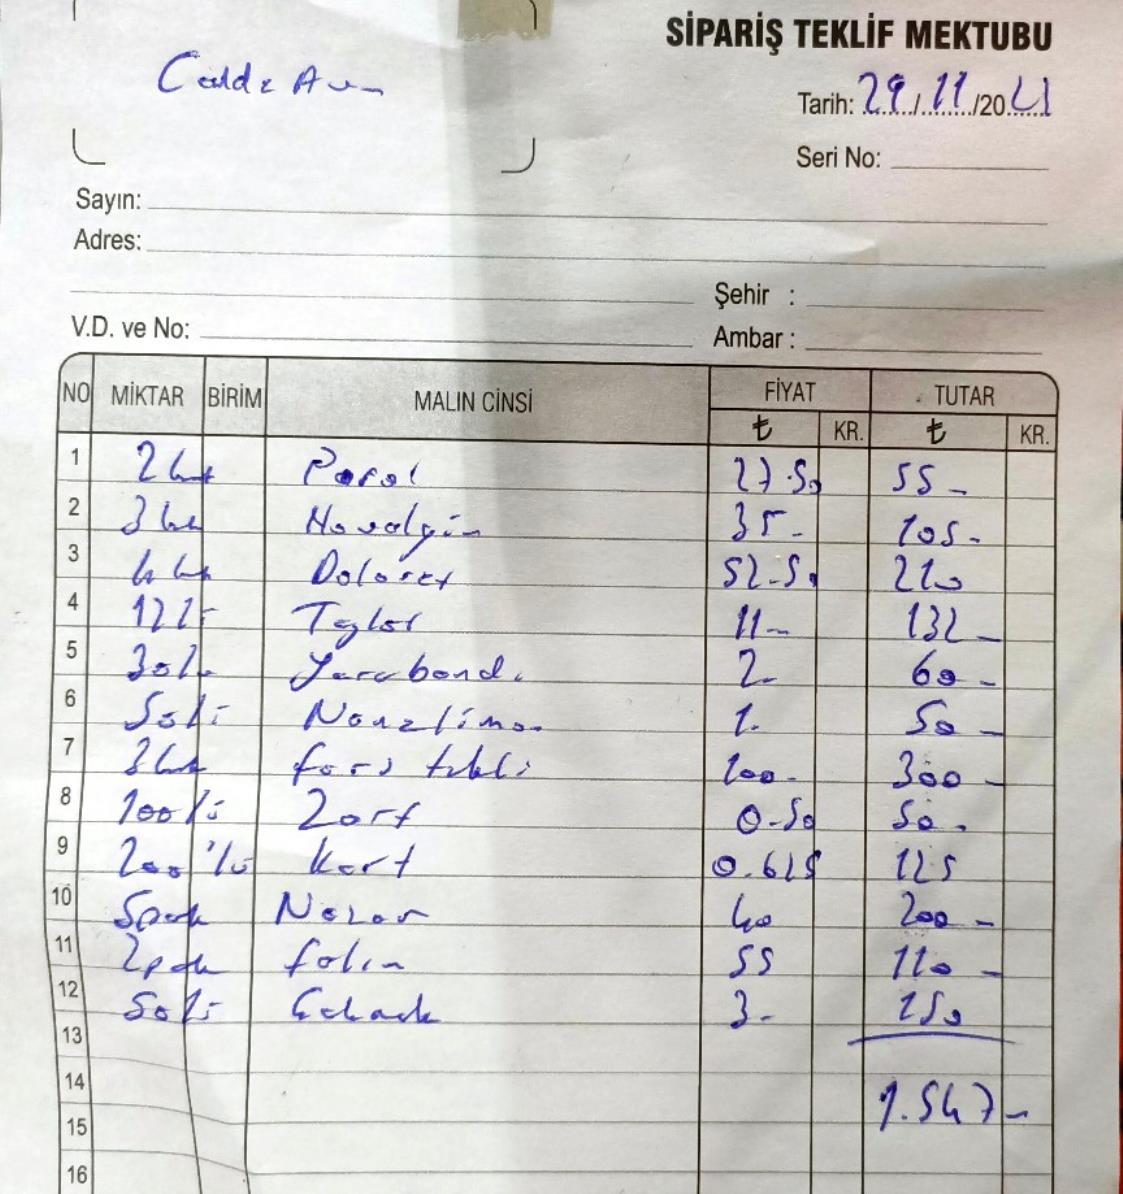 SİPARİŞ TEKLİF MEKTUBU
Cadde
Tarih: 29/11/2021
Seri No:
Sayın:
Adres:
Şehir :
V.D. ve No:
Ambar :
NO MİKTAR BİRİM MALIN CİNSİ FİYAT TUTAR
₺ KR. ₺ KR.
1 2 kut Parol 27.50 55-
2 3 kut Novalgin 35- 105-
3 4 kut Dolorex 52-50 210
4 12 li Taylot 11- 132-
5 30 lu Yara bandı 2- 60-
6 50 li Nane limon 1. 50-
7 3 kut fars tekli 100- 300-
8 100 lü Zarf 0-50 50-
9 200 'lü Kart 0.625 125
10 5 pak Nazar 40 200-
11 2 pak 55 110-
12 50 li 3- 150
13
14 1.547-
15
16